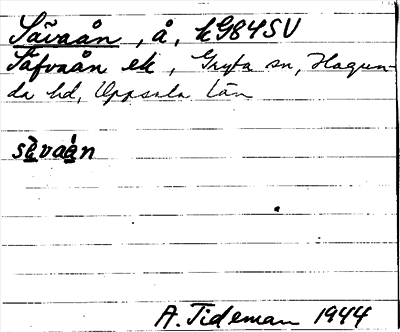 Sävaån, å, kG84SV
Säfvaån ek, Gryta sn, Hagun-
da hd, Uppsala län
sèvaàn
A. Tideman 1944